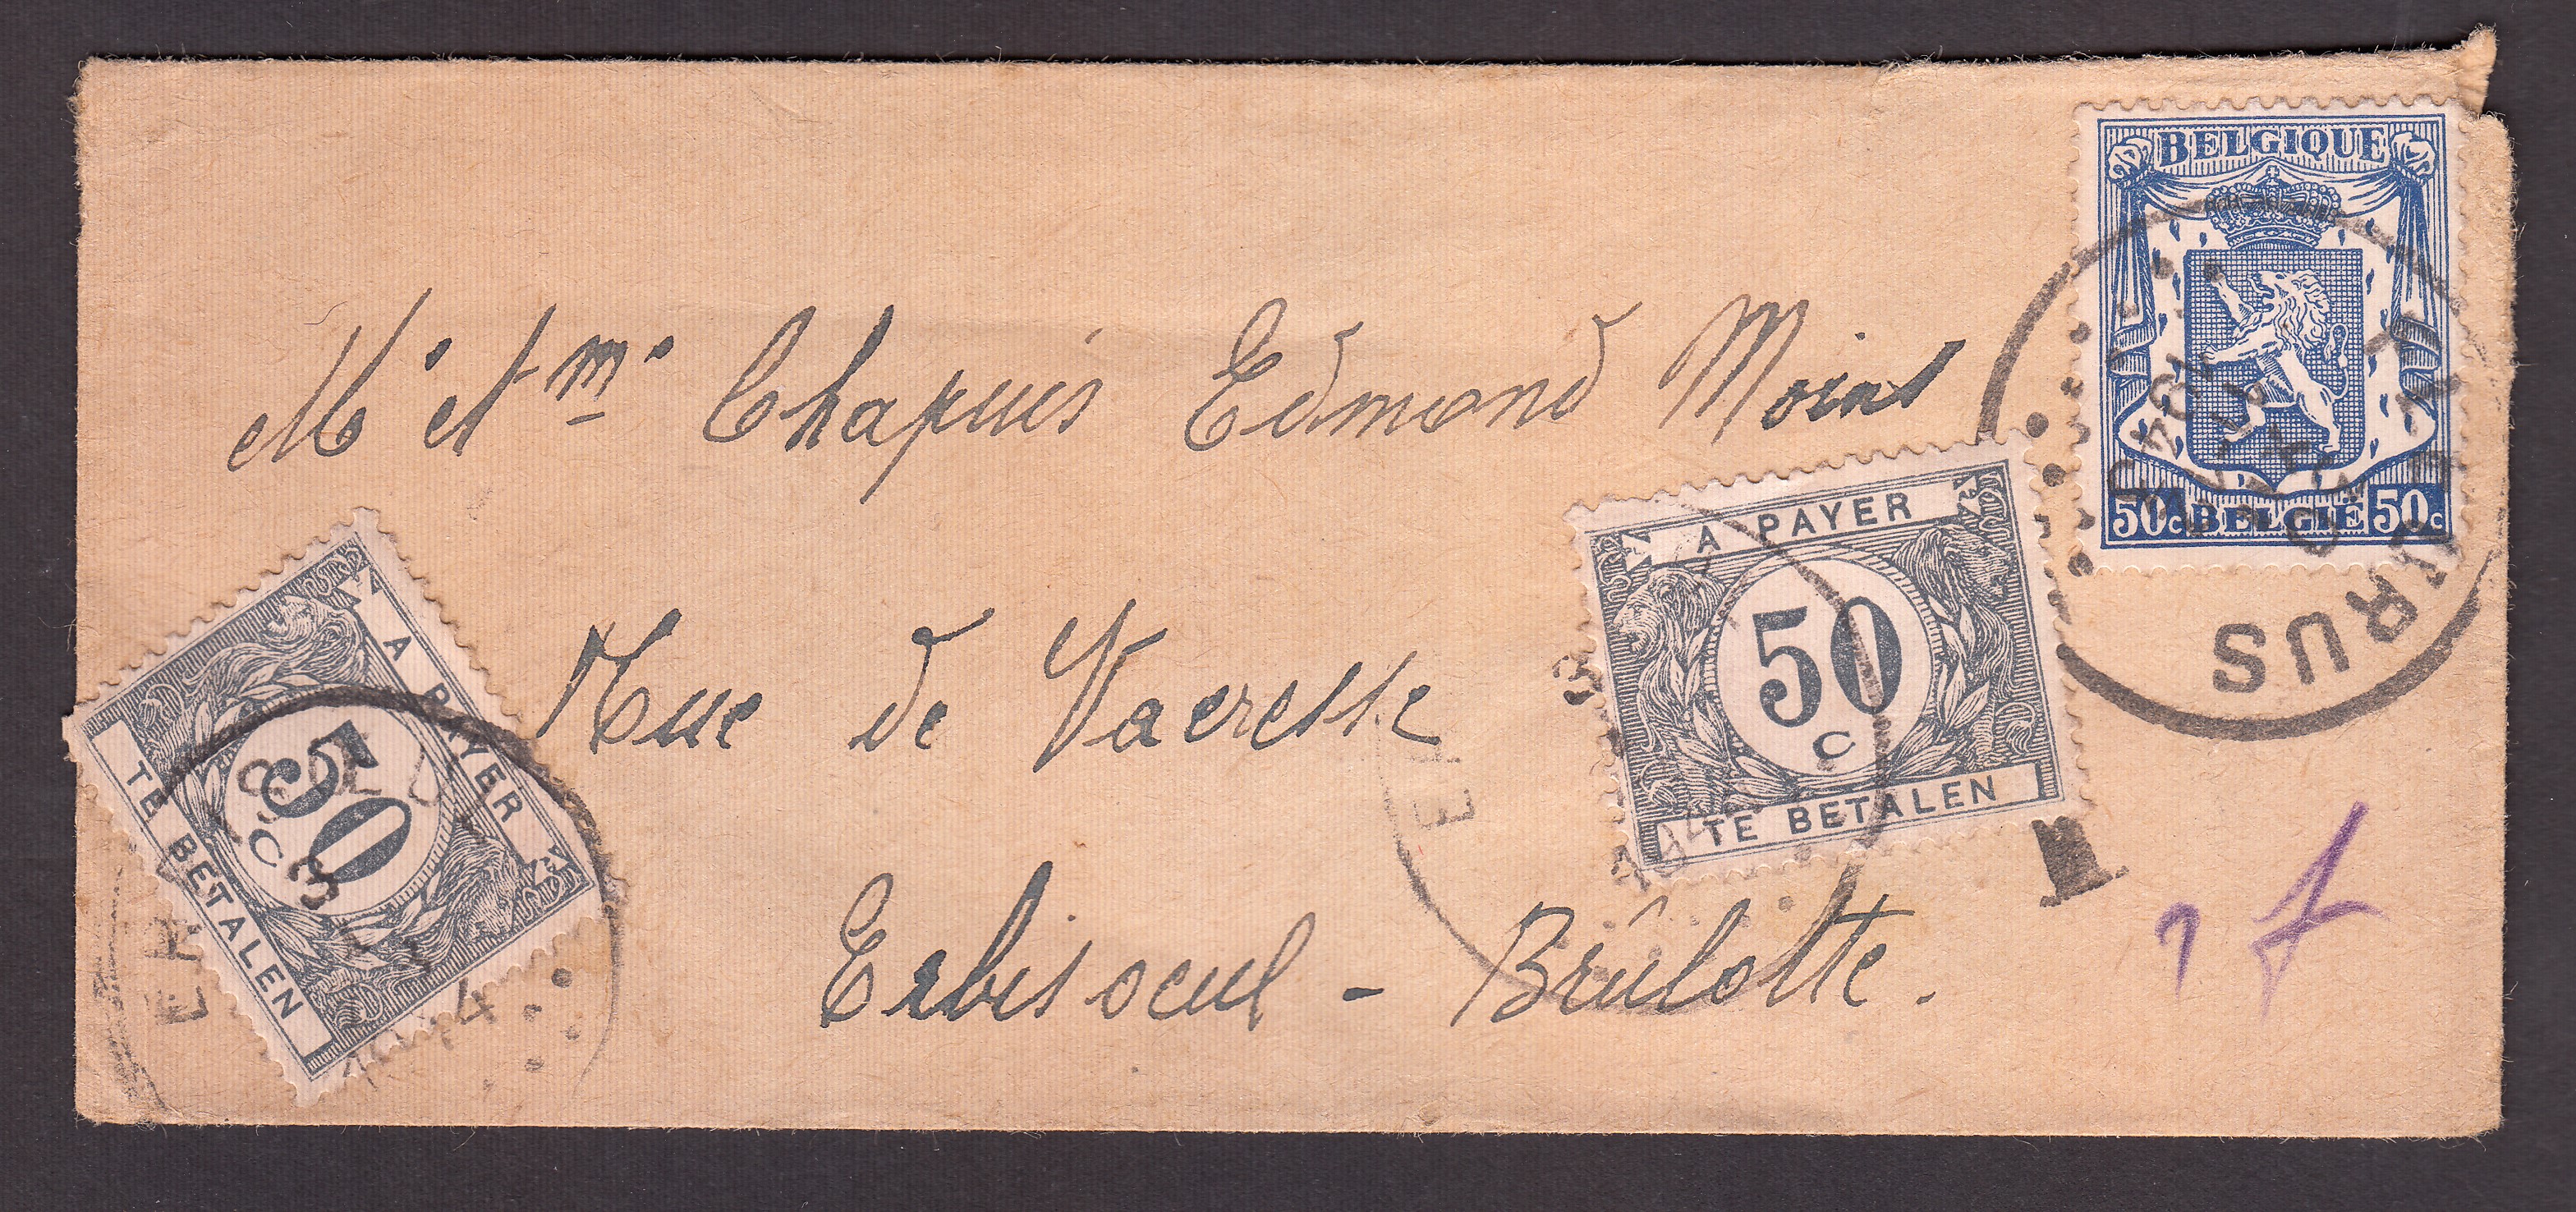 BELGIQUE
50c BELGIË 50c
Mr et Mme Chapuis Edmond Moins
A PAYER
50
c
TE BETALEN
Rue de Vaeresse
A PAYER
50
c
TE BETALEN
Erbisoeul - Brûlotte.
T
1 f
RUS
ER